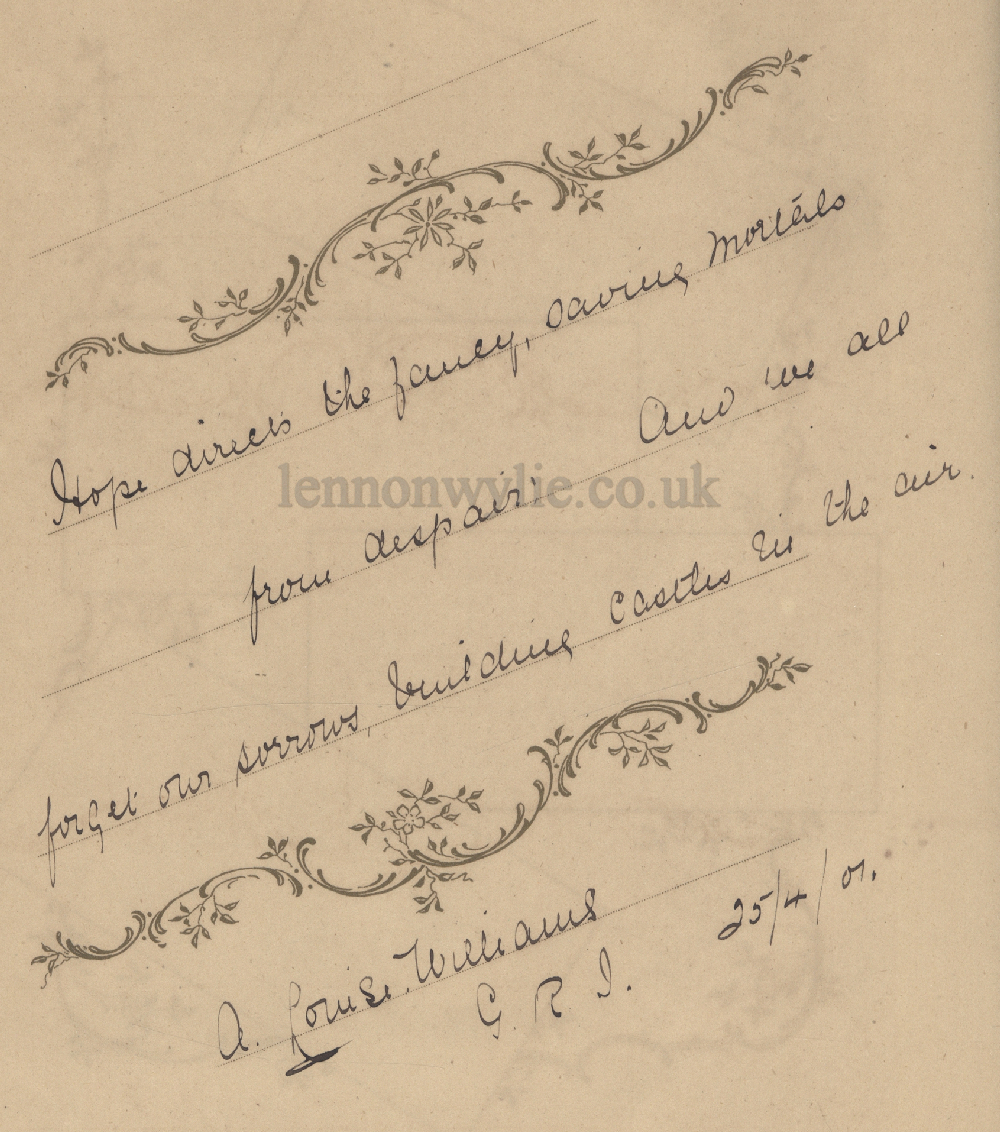 Hope directs the fancy, saving mortals
from despair; And we all
forget our sorrows, building castles in the air.
A. Louise Williams
G. R. I. 25/4/01.
lennonwylie.co.uk